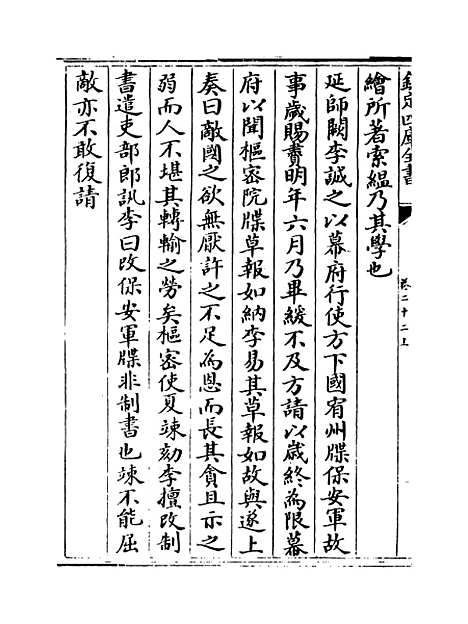 欽定四庫全書
卷二十二上
繪所著索緼乃其學也
延師闕李誠之以幕府行使方下國宥州牒保安軍故
事歲賜賚明年六月乃畢緩不及方請以歳終為限幕
府以聞樞密院牒草報如納李易其草報如故與遂上
奏曰敵國之欲無厭許之不足為恩而長其貪且示之
弱而人不堪其轉輸之勞矣樞密使夏竦劾李擅改制
書遣吏部郎訊李曰改保安軍牒非制書也竦不能屈
敵亦不敢復請